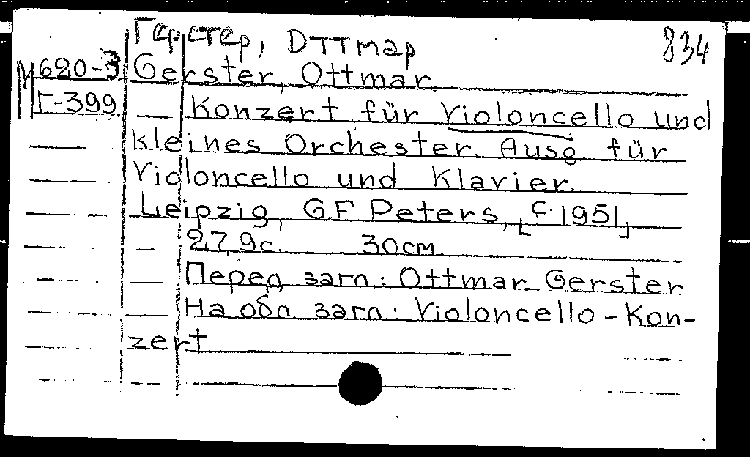 Герстер, Оттмар 834
М 620-3 Gerster, Ottmar.
Г-399 Konzert für Violoncello und
kleines Orchester. Ausg für
Violoncello und Klavier.
Leipzig, G.F. Peters, [c. 1951]
27, 9 с. 30 см
Перед загл.: Ottmar Gerster
На обл. загл.: Violoncello-Kon-
zert